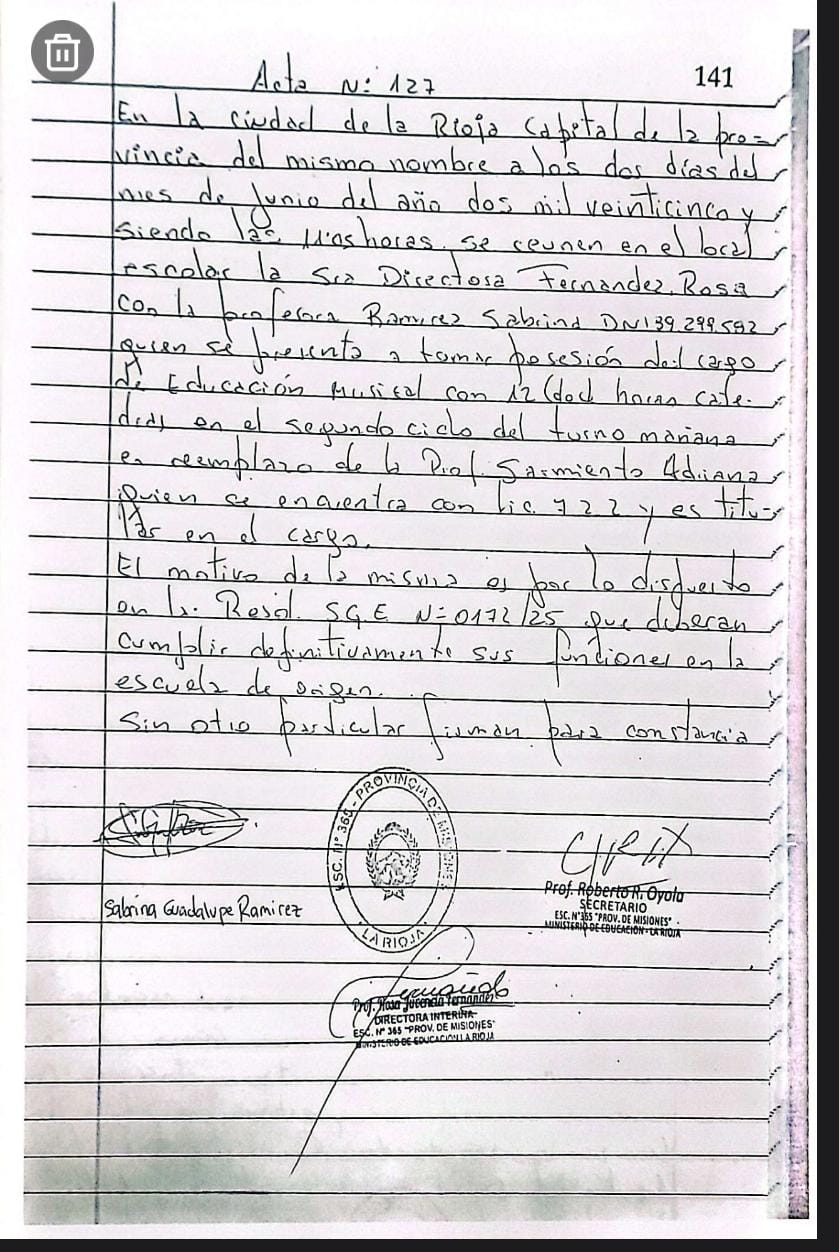 141
Acta N: 127
En la ciudad de la Rioja Capital de la pro-
vincia del mismo nombre a los dos días del
mes de Junio del año dos mil veinticinco y
siendo las horas se reunen en el local
escolar la Sra Directora Fernandez, Rosa
con la profesora Ramirez Sabrina DNI 39.299.592
quien se presenta a tomar posesión del cargo
de Educación Musical con 12 (doce horas cate-
dras en el segundo ciclo del turno mañana
en reemplazo de la Prof. Sarmiento Adriana
quien se encuentra con Lic. 722 y es titu-
lar en el cargo.
El motivo de la misma es por lo dispuesto
en la Resol. S.G.E N= 0172/25 que deberan
cumplir definitivamente sus funciones en la
escuela de origen.
Sin otro particular firman para constancia
ESC. N° 365 - PROVINCIA DE MISIONES
LA RIOJA
Sabrina Guadalupe Ramirez
Prof. Roberto R. Oyola
SECRETARIO
ESC. N°365 "PROV. DE MISIONES"
MINISTERIO DE EDUCACIÓN - LA RIOJA
Prof. Rosa Fernandez
DIRECTORA INTERINA
ESC. N° 365 "PROV. DE MISIONES"
MINISTERIO DE EDUCACIÓN LA RIOJA